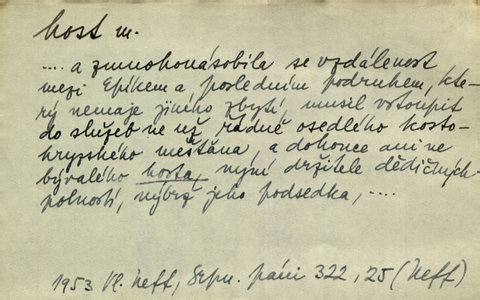 host m.
.... a zmnohonásobila se vzdálenost
mezi Epikem a posledním podruhem, kte-
rý nemaje jiného zbytí, musel vstoupit
do služeb ne už řádně osedlého kosto-
hryzského měšťana, a dokonce ani ne
bývalého hosta, nyní držitele dědičných
polností, nýbrž jeho podsedka, ....
1953 Vl. Neff, Srpn. páni 322, 25 (Neff)